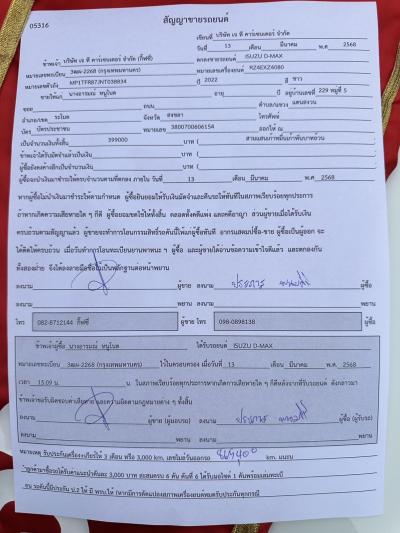 สัญญาขายรถยนต์
05316
เขียนที่ บริษัท เจ ที คาร์เซนเตอร์ จำกัด
วันที่ 13 เดือน มีนาคม พ.ศ 2568
ข้าพเจ้า บริษัท เจ ที คาร์เซนเตอร์ จำกัด (กิ๊ฟซี่) ตกลงขายรถยนต์ ISUZU D-MAX
หมายเลขทะเบียน 3ฒฌ-2268 (กรุงเทพมหานคร) หมายเลขเครื่องยนต์ RZ4EXZ4080
หมายเลขตัวถัง MP1TFR87JNT038834 ปี 2022 สี ขาว
ขายให้แก่ นางอารมณ์ หนูโนด อายุ ปี อยู่บ้านเลขที่ 229 หมู่ที่ 5
ซอย ถนน ตำบล/แขวง แดนสงวน
อำเภอ/เขต ระโนด จังหวัด สงขลา โทรศัพท์
บัตร บัตรประชาชน หมายเลข 3800700606154 ออกให้ ณ
เป็นจำนวนเงินทั้งสิ้น 399000 บาท ( สามแสนเก้าหมื่นเก้าพันบาทถ้วน )
ข้าพเจ้าได้รับมัดจำแล้วเป็นเงิน บาท ( )
ผู้ซื้อยังคงค้างอีกเป็นจำนวนเงิน บาท ( )
ผู้ซื้อจะนำเงินมาชำระให้ครบจำนวนตามที่ตกลง ภายใน วันที่ 13 เดือน มีนาคม พ.ศ. 2568
หากผู้ซื้อไม่นำเงินมาชำระให้ตามกำหนด ผู้ซื้อยินยอมให้ริบเงินมัดจำและคืนรถให้ทันทีในสภาพเรียบร้อยทุกประการ
ถ้าหากเกิดความเสียหายใด ๆ ก็ดี ผู้ซื้อยอมชดใช้ให้ทั้งสิ้น ตลอดทั้งคดีแพ่ง และคดีอาญา ส่วนผู้ขายเมื่อได้รับเงิน
ครบถ้วนตามสัญญาแล้ว ผู้ขายจะทำการโอนกรรมสิทธิ์รถคันนี้ให้แก่ผู้ซื้อทันที อากรแสตมป์ซื้อ-ขาย ผู้ซื้อเป็นผู้ออก จะ
ได้ติดให้ครบถ้วน เมื่อวันทำการโอนทะเบียนยานพาหนะ ฯ ผู้ซื้อ และผู้ขายได้อ่านข้อความเข้าใจดีแล้ว และตกลงกัน
ทั้งสองฝ่าย จึงได้ลงลายมือชื่อไว้เป็นหลักฐานต่อหน้าพยาน
ลงนาม ผู้ขาย ลงนาม ผู้ซื้อ
ลงนาม พยาน ลงนาม พยาน
โทร 082-8712144 กิ๊ฟซี่ ผู้ขาย โทร 098-0898138 ผู้ซื้อ
ข้าพเจ้าผู้ซื้อ นางอารมณ์ หนูโนด ได้รับรถยนต์ ISUZU D-MAX
หมายเลขทะเบียน 3ฒฌ-2268 (กรุงเทพมหานคร) ไว้ในครอบครอง เมื่อวันที่ 13 เดือน มีนาคม พ.ศ. 2568
เวลา 15.09 น. ในสภาพเรียบร้อยทุกประการหากเกิดการเสียหายใด ๆ ก็ดีหลังจากที่รับรถยนต์ ดังกล่าวมา
ข้าพเจ้าขอรับผิดชอบค่าเสียหายและความผิดตามกฎหมายต่าง ๆ ทั้งสิ้น
ลงนาม ผู้ขาย (ผู้มอบรถ) ลงนาม ผู้ซื้อ (ผู้รับรถ)
ลงนาม พยาน ลงนาม พยาน
หมายเหตุ รับประกันเครื่อง+เกียร์ให้ 3 เดือน หรือ 3,000 km. เลขไมล์วันออกรถ km. แนะนำ
ลูกค้ามาซื้อรถได้รับค่าแนะนำคันละ 3,000 บาท สะสมครบ 6 คัน คันที่ 6 ได้รับมอไซค์ 1 คันพร้อมเล่มทะเบี
ยน รถคันนี้มีประกัน ป.2 ให้ มี พรบ.ให้ (หากมีการดัดแปลงสภาพเครื่องยนต์หมดรับประกันทุกกรณี